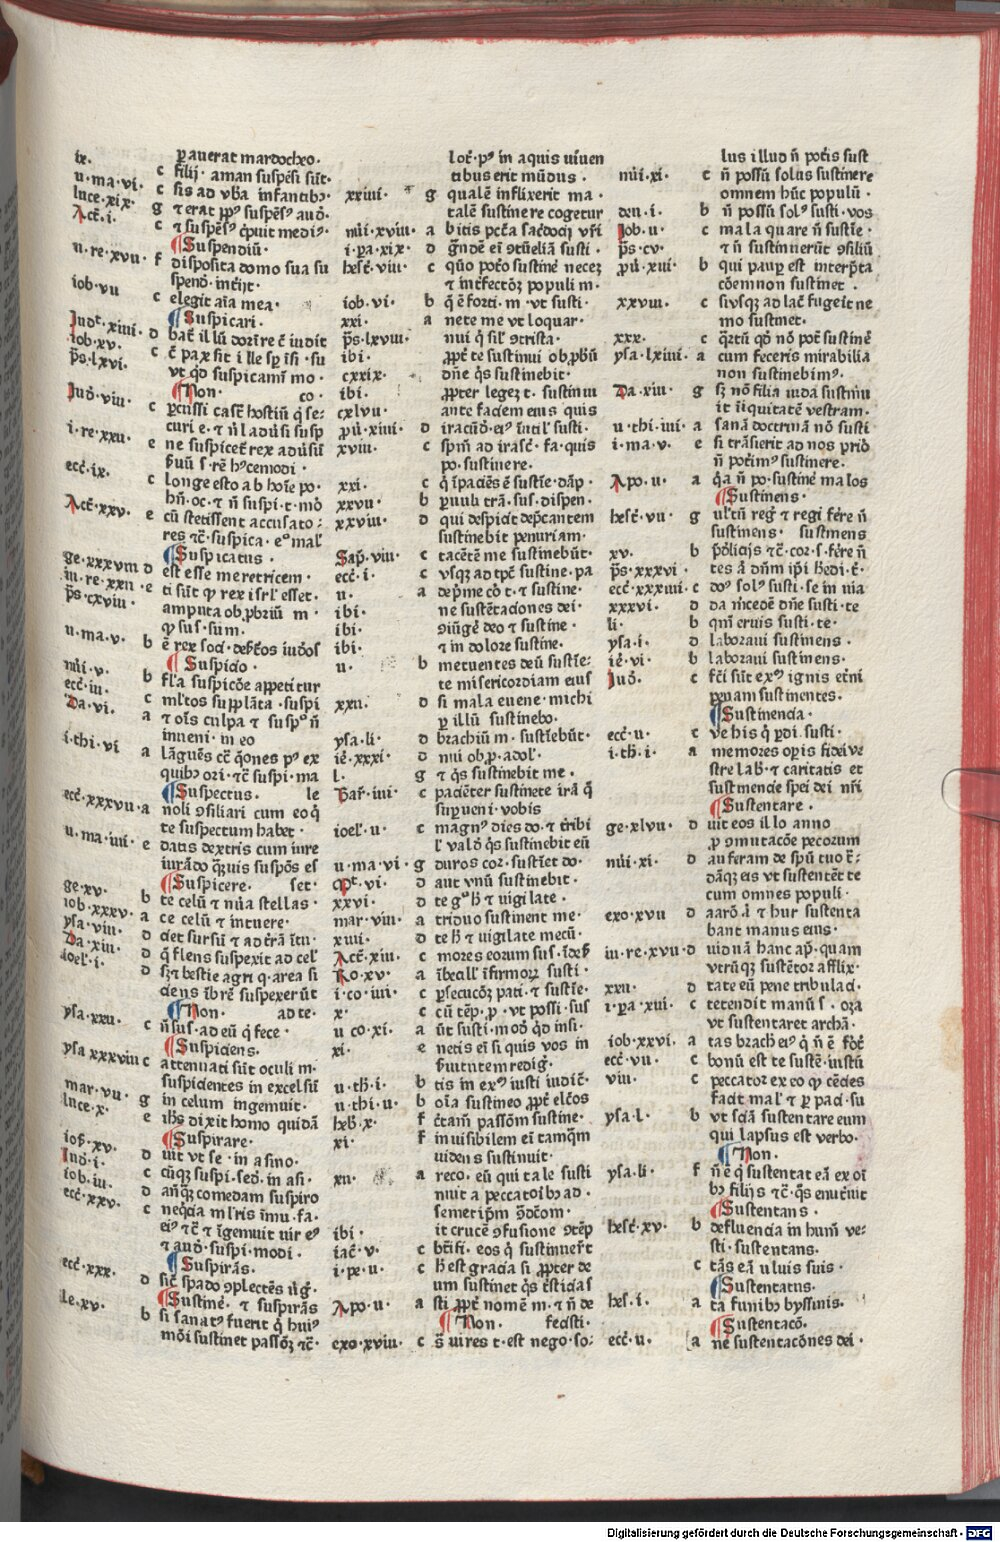 ix. pauerat mardocheo.
c filij . aman suspēsi sūt.
ii. ma. vi. c sis ad vba infantibꝫ.
luce. xix. g ⁊ erat ppꝰ suspēsꝰ audi.
Act. i. c ⁊ suspēsꝰ crepuit mediꝰ.
Suspendiū.
ii. re. xvii. f disposita domo sua su
spend. interijt.
iob. vii c elegit aīa mea.
Suspicari.
Judic. xiiii. d
iob. xv. c ē pax sit ille sp īsi . su
ps. lxvi. vt qd suspicamī mo.
Non. co.
Jud. viii. c percussi cast hostiū q se
curi e. ⁊ n̄l aduersi susp
i. re. xxii. e ne suspicet rex aduersū
ecci. ix. c longe esto ab hoīe po.
Act. xxv. e cū stetissent accusato
Suspicatus.
ge. xxxviii d est esse meretricem.
iii. re. xxii. e ti sūt qp rex isrl' esset.
ps. cxviii. amputa obprobriū m.
qp sus. sum.
ii. ma. v. b
Suspicio.
nūi. v. b fl'a suspicōe appetitur
ecci. iii. c ml'tos supplāta . suspi
Da. vi. a ⁊ oīs culpa ⁊ suspo n̄
inueni. in eo
i. thi. vi a lāguēs cc qōnes pꝰ ex
quibꝫ ori. ⁊c suspi. ma
Suspectus. le
ecci. xxxvii. a noli ɔsiliari cum eo q
te suspectum habet.
ii. ma. iiii. e datus dextris cum iure
iurādo quis suspōs es
Suspicere. set.
ge. xv. b te celū ⁊ nūa stellas.
iob. xxxv. a ce celū ⁊ intuere.
ysa. viii. d ciet sursū ⁊ ad terrā ītu.
Da. xiii. d q flens suspexit ad cel'
ioel'. i. d sz ⁊ bestie agri q. area si
ciens ibrē suspexerūt
Non. ad te.
ysa. xxii. c n̄ sus. ad eū q fece.
Suspiciens.
ysa xxxviii c attenuati sūt oculi m.
suspicientes in excelsū
mar. vii. g in celum ingemuit.
luce. x. e ihs dixit homo quidā
Suspirare.
ios. xv. d uit vt se. in asino.
Jud. i. c cūqz suspi. sed. in asi.
iob. iii. d anqz comedam suspiro
ecci. xxv. c neqcia ml'ris īmu. fa.
eiꝰ ⁊c ⁊ īgemuit uir eꝰ
⁊ aud. suspi. modi.
Suspirās.
ecci. xxx. d sic spado ɔplectēs
Sustinē. ⁊ suspirās
le. xv. b si sanatꝰ fuerit q huiꝰ
mōi sustinet passōz ⁊c.
lot. pꝰ in aquis viuen
tibus erit mūdus.
xxiiii. g qualē inflixerit ma.
talē sustinere cogetur
nūi. xviii. a bitis pctā sacdocij vri
i. pa. xix. d
hest. viii. c quo poto sustinē necez
⁊ interfectōz populi m.
iob. vi. b q ē forti. m. vt susti.
xxi. a nete me vt loquar.
ps. lxviii. nui q sil' ɔtrista.
ibi. ppt te sustinui obprobriū
cxxix. dn̄e qs sustinebit.
ibi. ppter legez t. sustinui
cxlvii. ante faciem eius quis
pū. xviii. d
xviii. c spm ad irasc. fa. quis
po. sustinere.
xxi. c q īpaciēs ē sustīe. dāp.
xxvii. b puuli trā. sus. dispen.
xxviii. d qui despicit depcantem
sustinebit penuriam.
Sap. viii. c tacētē me sustinebūt.
ecci. i. c vsqz ad tpc sustine. pa
ii. a depme cō t. ⁊ sustine.
ibi. ne sustētaciones dei.
ibi. ɔiūgē deo ⁊ sustine.
ibi. ⁊ in dolore sustine.
ii. b metuentes deū sustīe
te misericordiam eius
xxii. d si mala euene. michi
p illū sustinebo.
ysa. li. d brachiū m. sustīebūt.
iē. xxxi. d nui obp. adol'.
l. g ⁊ qs sustinebit me.
Bar. iiii. c paciēter sustinete irā q
supueni. vobis
ioel'. ii. c magnꝰ dies do. ⁊ tribi
l' valō qs sustinebit eū
ii. ma. vi. g duros cor. sustīet do.
Mt. vi. d aut vnū sustinebit.
xxvi. d te gꝰ h ⁊ uigilate.
mar. viii. a triduo sustinent me.
xiiii. d te h ⁊ uigilate mecū.
Act. xiii. c mores eorum sus. īdes
Ro. xv. a ībecill' īfirmorz susti.
i. co. iiii. c psecucōz pati. ⁊ sustīe.
x. c cū tēp. p. vt possi. sus
ii co. xi. a ut susti. mod qd insi.
xi. e netis eī si quis vos in
seruitutem redig.
ii. th. i. b tis in exꝰ iusti iudic.
ii. thi. ii. b oīa sustineo ppt elcos
heb. x. f ctam passōm sustine.
xi. f inuisibilem eī tamqm
uidens sustinuit.
xii. a reco. eū qui tale susti
nuit a peccatoībꝫ ad.
semetipm ɔdcom.
ibi. it crucē ɔfusione ɔtēp
iac. v. c bti. eos q sustinuert
i. pe. ii. c h est gracia si ppter de
um sustinet qs tsticias
Apo. ii. a sti ppt nomē m. ⁊ n̄ de
Non. fecisti.
exo. xviii. c s uires t. est nego. so
lus illud n̄ potis sust
nūi. xi. c n̄ possū solus sustinere
omnem hūc populū.
deu. i. b n̄ possū solꝰ susti. vos
Job. ii. c mala quare n̄ sustīe.
ps. cv. ⁊ n̄ sustinuerūt ɔsiliū
pū. xiii. b qui paup est interpta
cōem non sustinet.
xxviii. c siusqz ad lac fugeit ne
mo sustinet.
xxx. c qrtū qd nō pot sustinē
ysa. lxiiii. a cum feceris mirabilia
non sustinebimꝰ.
Da. xiii. g sz nō filia iuda sustinui
it iniquitatē vestram.
ii. thi. iiii. a sanā doctrinā nō susti
i. ma. v. e si trāsierit ad nos priō
n̄ potimꝰ sustinere.
Apo. ii. a qa n̄ po. sustinē malos
Sustinens.
hest. vii. g ul'tū reg ⁊ regi ferre n̄
sustinens. sustinens
xv. b
ps. xxxvi. tes ā dn̄m ipi hedi. t.
ecci. xxxiiii. c doꝰ solꝰ susti. se in uia
xxxvi. d da mcedē dn̄e susti. te
li. b qm eruis susti. te.
ysa. i. d laboraui sustinens.
iē. vi. b laboraui sustinens.
Jud. c fci sūt exꝰ ignis etni
penam sustinentes.
Sustinencia.
ecci. ii. c ve his q pdi. susti.
i. th. i. a memores opis fidei ve
stre lab. ⁊ caritatis et
sustinencie spei dei nri
Sustentare.
ge. xlvii. d uit eos illo anno
p ɔmutacōe pecorum
nūi. xi. d auferam de spū tuo t.
dāqz eis vt sustentēt te
cum omnes populi.
exo. xvii d aarō ā ⁊ hur sustenta
bant manus eius.
iii. re. xvii. d uiduā hanc ap. quam
vtrūqz sustētor afflix.
xxii. d tate eū pene tribulad.
i. pa. xiii. c tetendit manū s. oza
vt sustentaret archā.
iob. xxvi. a tas brach eiꝰ q n̄ ē fort
ecci. vii. c bonū est te sustē. iustū
viii. c peccator ex eo qp cēdes
facit mal' ⁊ p paci. su
ysa. l. b vt sciā sustentare eum
qui lapsus est verbo.
Non.
ysa. li. f n̄ ē q sustentat eā ex oī
bꝫ filijs ⁊c. qs enutriuit
Sustentans.
hest. xv. b defluencia in humū ve
sti. sustentans.
c tās eā uluis suis.
Sustentatus.
hes. i. a ta funibꝫ byssinis.
Sustentacō.
ecci. ii. a ne sustentacōnes dei.
Digitalisierung gefördert durch die Deutsche Forschungsgemeinschaft - DFG